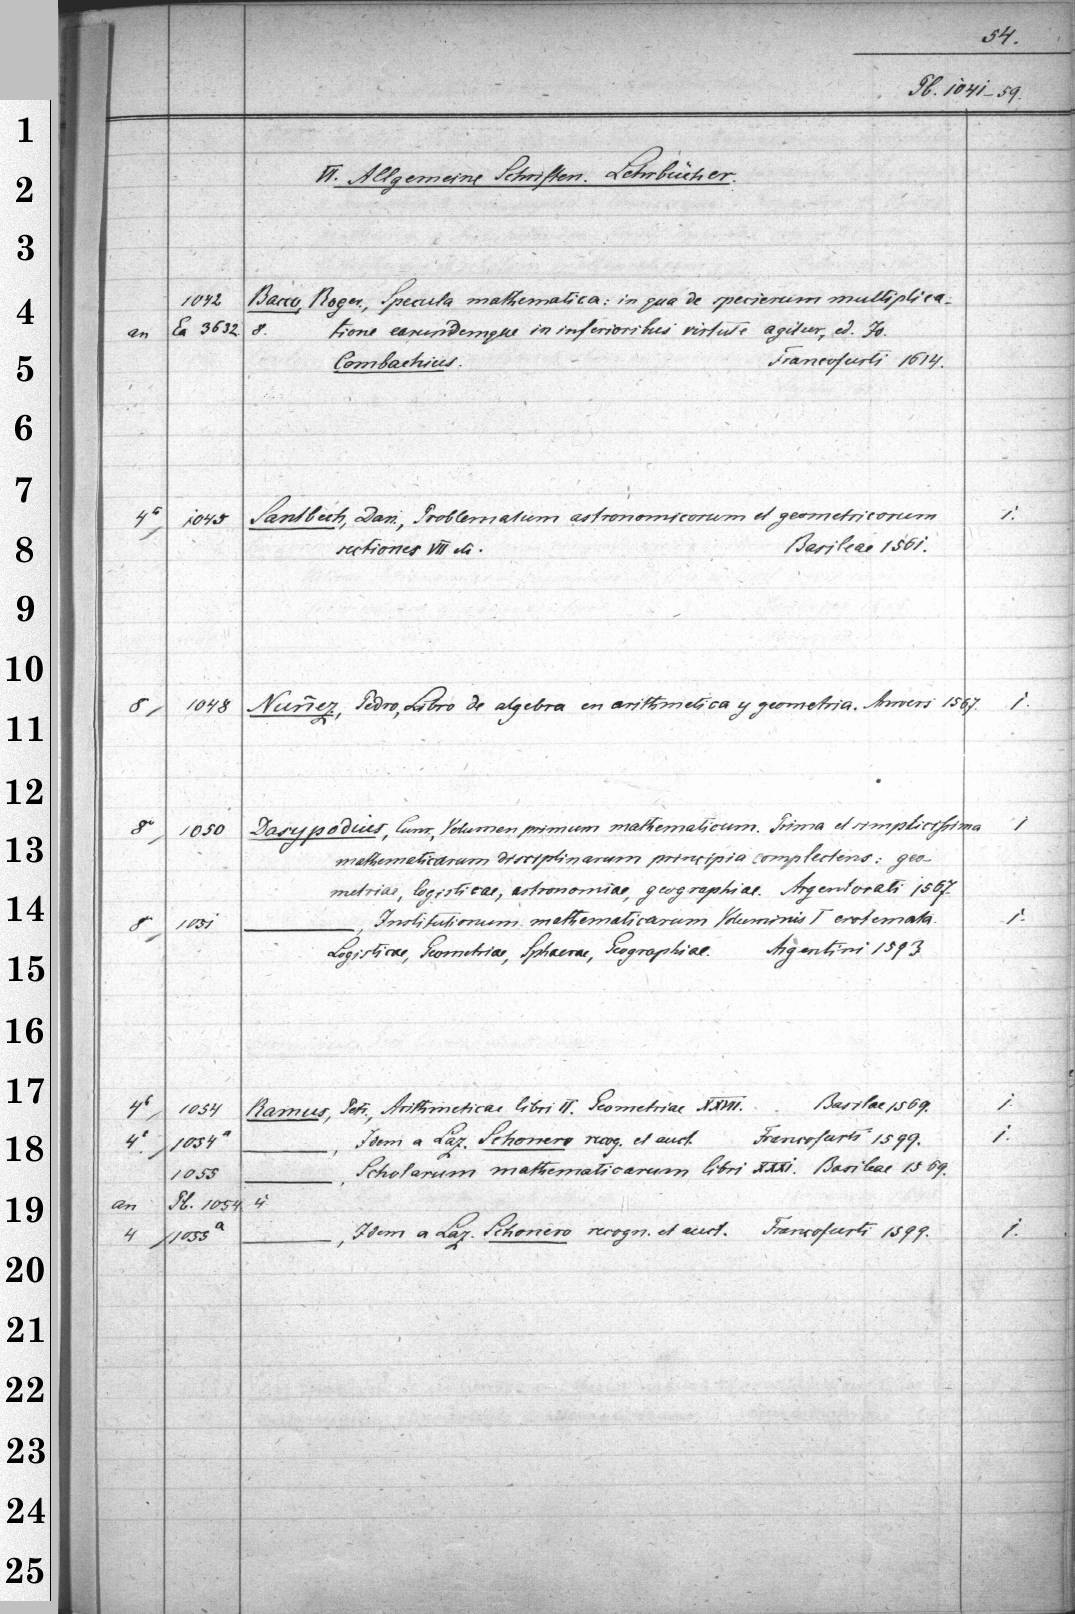 54.
Pb. 1041-59.
VI. Allgemeine Schriften. Lehrbücher.
1042 Baco, Roger, Specula mathematica: in qua de specierum multiplica-
an Ea 3632 8. tione earundemque in inferioribus virtute agitur, ed. Jo.
Combachius. Francofurti 1614.
4° 1045 Santbech, Dan., Problematum astronomicorum et geometricorum 1.
sectiones VII etc. Basileae 1561.
8 1048 Nuñez, Pedro, Libro de algebra en arithmetica y geometria. Anvers 1567. 1.
8° 1050 Dasypodius, Cunr., Volumen primum mathematicum. Prima et simplicissima 1
mathematicarum disciplinarum principia complectens: geo-
metriae, logisticae, astronomiae, geographiae. Argentorati 1567.
8 1051 ———, Institutionum mathematicarum Voluminis I erotemata 1.
Logisticae, Geometriae, Sphaerae, Geographiae. Argentini 1593
4° 1054 Ramus, Petr., Arithmeticae libri II. Geometriae XXVII. Basileae 1569. 1.
4° 1054a ———, Idem a Laz. Schonero recog. et auct. Francofurti 1599. 1.
1055 ———, Scholarum mathematicarum libri XXXI. Basileae 1569.
an Pb. 1054 4
4 1055a ———, Idem a Laz. Schonero recogn. et auct. Francofurti 1599. 1.
1
2
3
4
5
6
7
8
9
10
11
12
13
14
15
16
17
18
19
20
21
22
23
24
25